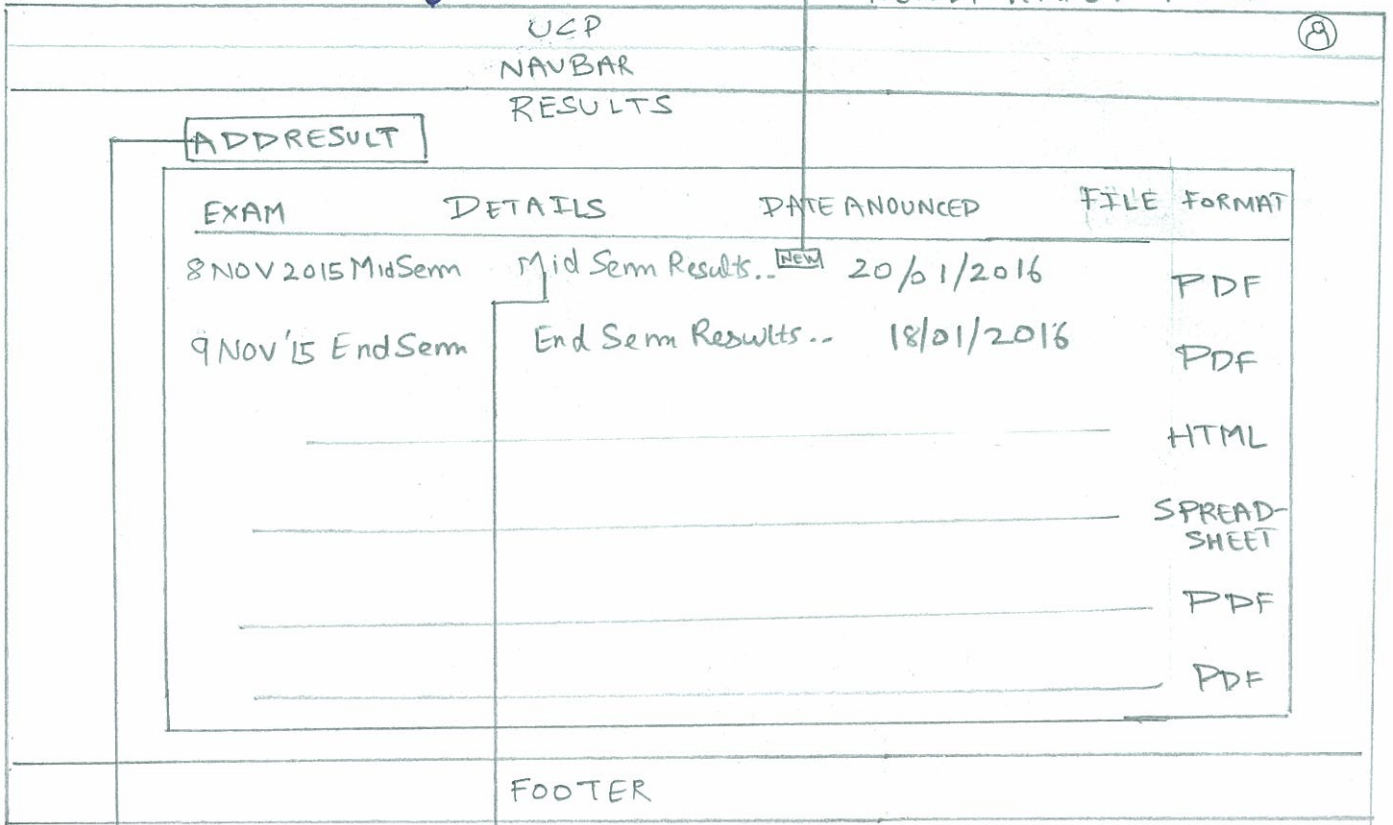 UCP
NAVBAR
RESULTS
ADDRESULT
EXAM DETAILS DATE ANOUNCED FILE FORMAT
8 NOV 2015 MidSem Mid Sem Results.. NEW 20/01/2016 PDF
9 NOV '15 EndSem End Sem Results.. 18/01/2016 PDF
HTML
SPREAD-
SHEET
PDF
PDF
FOOTER